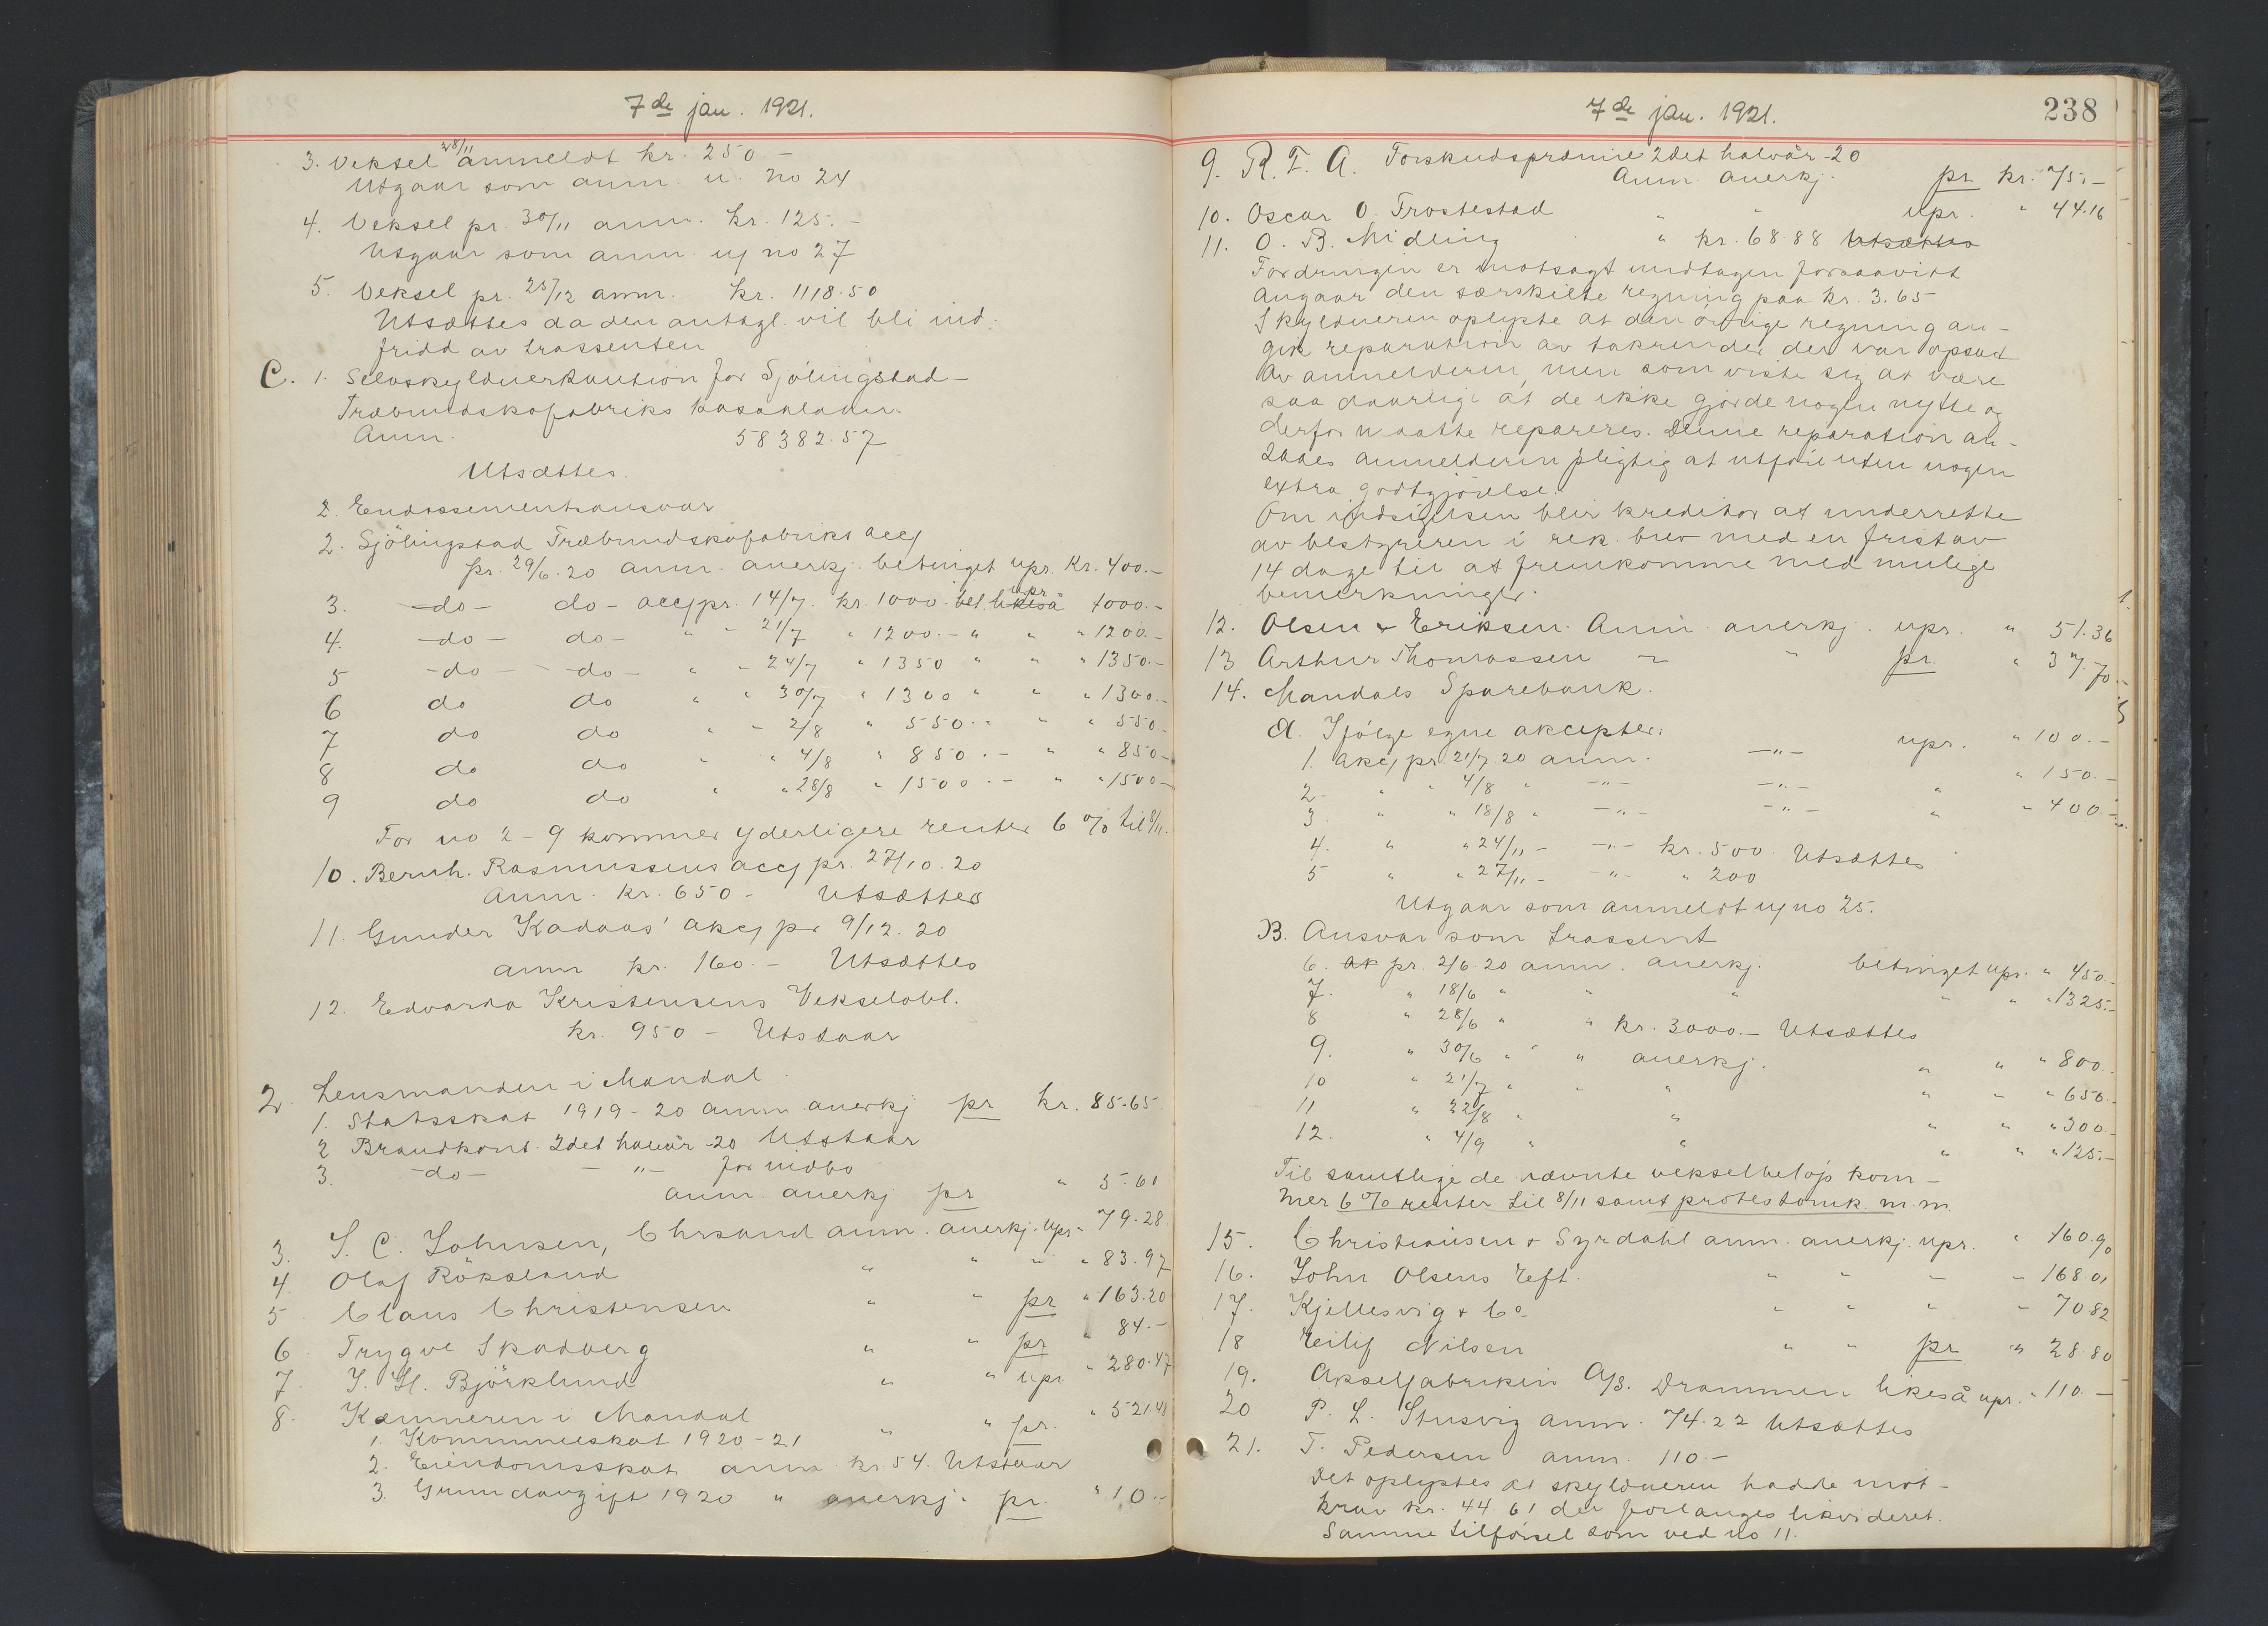 7de jan. 1921.
3. Veksel 28/11 anmeldt kr. 250.-
Utgaar som anm. u. no 24
4. Veksel pr. 30/11 anm. kr. 125.-
Utgaar som anm. u/ no 27
5. Veksel pr. 25/12 anm. kr. 1118.50
Utsættes da den antagl. vil bli ind-
fridd av trassenten
C. 1. Selvskyldnerkaution for Sjölingstad-
Træbundskofabriks kassakladd.
Anm. 58382.57
Utsættes.
2. Endossementsansvar
2. Sjölingstad Træbundskofabriks acc/
pr. 29/6.20 anm. anerkj. betinget upr. kr. 400.-
3. -do- do- acc/ pr. 14/7. kr. 1000. bet. likeså upr 1000.-
4. -do- do- " - 21/7 " 1200.- " " " 1200.-
5 -do- -do- " - 24/7 " 1350 " " " 1350.-
6 do do " " 30/7 " 1300 " " " 1300.-
7 do do " - 2/8 " 550.- " " 550.
8 do do " " 4/8 " 850.- " " 850.-
9 do do " " 28/8 " 1500.- " " 1500.-
For no 2-9 kommer yderligere renter 6% til 8/11.
10. Bernh. Rasmussens acc/ pr. 27/10.20
anm. kr. 650- Utsættes
11. Gunder Kadaas' akc/ pr 9/12.20
anm kr. 160.- Utsættes
12. Edvarda Kristensens Vekselobl.
kr. 950 - Utstaar
2. Lensmanden i Mandal.
1. Statsskat 1919-20 anm anerkj pr kr. 85.65
2 Brandkont. 2det halvår -20 Utstaar
3. -do- - " - for nidbo
anm. anerkj pr " 5.61
3. S. C. Johnsen, Chrsand anm. anerkj. upr " 79.28
4 Olaf Röksland " " " " 83.97
5 Claus Christensen " " pr " 163.20
6 Trygve Skadberg " " pr " 84.-
7. J. H. Björklund " " upr " 280.47
8. Kæmneren i Mandal
1. Kommuneskat 1920-21 " " pr. " 521.41
2. Eiendomsskat anm kr. 54. Utstaar
3. Grundavgift 1920 " anerkj. pr. " 10.-
7de jan. 1921.
238
9. R. T. A. Forskudspræmie 2det halvår -20
Anm. anerkj. pr kr. 75.-
10. Oscar O. Frostestad " " upr. " 44.16
11. O. B. Midling " kr. 68.88 Utsættes
Fordringen er motsagt undtagen forsaavidt
angaar den særskilte regning paa kr. 3.65
Skyldneren oplyste at den övrige regning an-
gik reparation av takrender der var opsat
av anmelderen, men som viste sig at være
saa daarlige at de ikke gjorde nogen nytte og
derfor maatte repareres. Denne reparation an-
saaes anmelderen pligtig at utföre uten nogen
extra godtgjörelse.
Om indsigelsen blir kreditor at underrette
av bestyreren i rek. brev med en frist av
14 dage til at fremkomme med mulige
bemerkninger.
12. Olsen & Eriksen Anm. anerkj. upr. " 51.36
13 Arthur Thomassen " " pr " 37.70
14. Mandals Sparebank.
A. Ifölge egne akcepter.
1. akc/ pr. 21/7.20 anm. -"- upr. " 100.-
2. " " 4/8 " -"- -"- " " 150.-
3 " " 18/8 " -"- -"- " " 400.-
4. " " 24/11 - -"- kr. 500. Utsættes
5 " " 27/11 - -"- " 200
Utgaar som anmeldt u/ no 25.
B. Ansvar som trassent
6. ak pr. 2/6.20 anm. anerkj. betinget upr. " 450.-
7. " 18/6 " " " " " " 1325.-
8 " 28/6 " " kr. 3000.- Utsættes
9. " 30/6 " " anerkj. " " " 800.
10 " 21/7 " " " " " " 650.-
11 " 22/8 " " " " " 300.-
12. " 4/9 " " " " " 125.-
Til samtlige de nævnte vekselbelöp kom-
mer 6% renter til 8/11 samt protestomk. m.m
15. Christiansen & Syrdahl anm. anerkj. upr. " 160.90
16. John Olsens Eft. " " " " 168.01
17. Kjellesvig & Co. " " " " 70.82
18 Eilif Nilsen " " pr " 28.80
19. Akselfabriken A/S. Drammen likeså upr. " 110.-
20 P. L. Stusvig anm. 74.22 Utsættes
21. T. Pedersen anm. 110.-
Det oplystes at skyldneren hadde mot-
krav kr. 44.61 der forlanges likvideret.
Samme tilförsel som ved no 11.